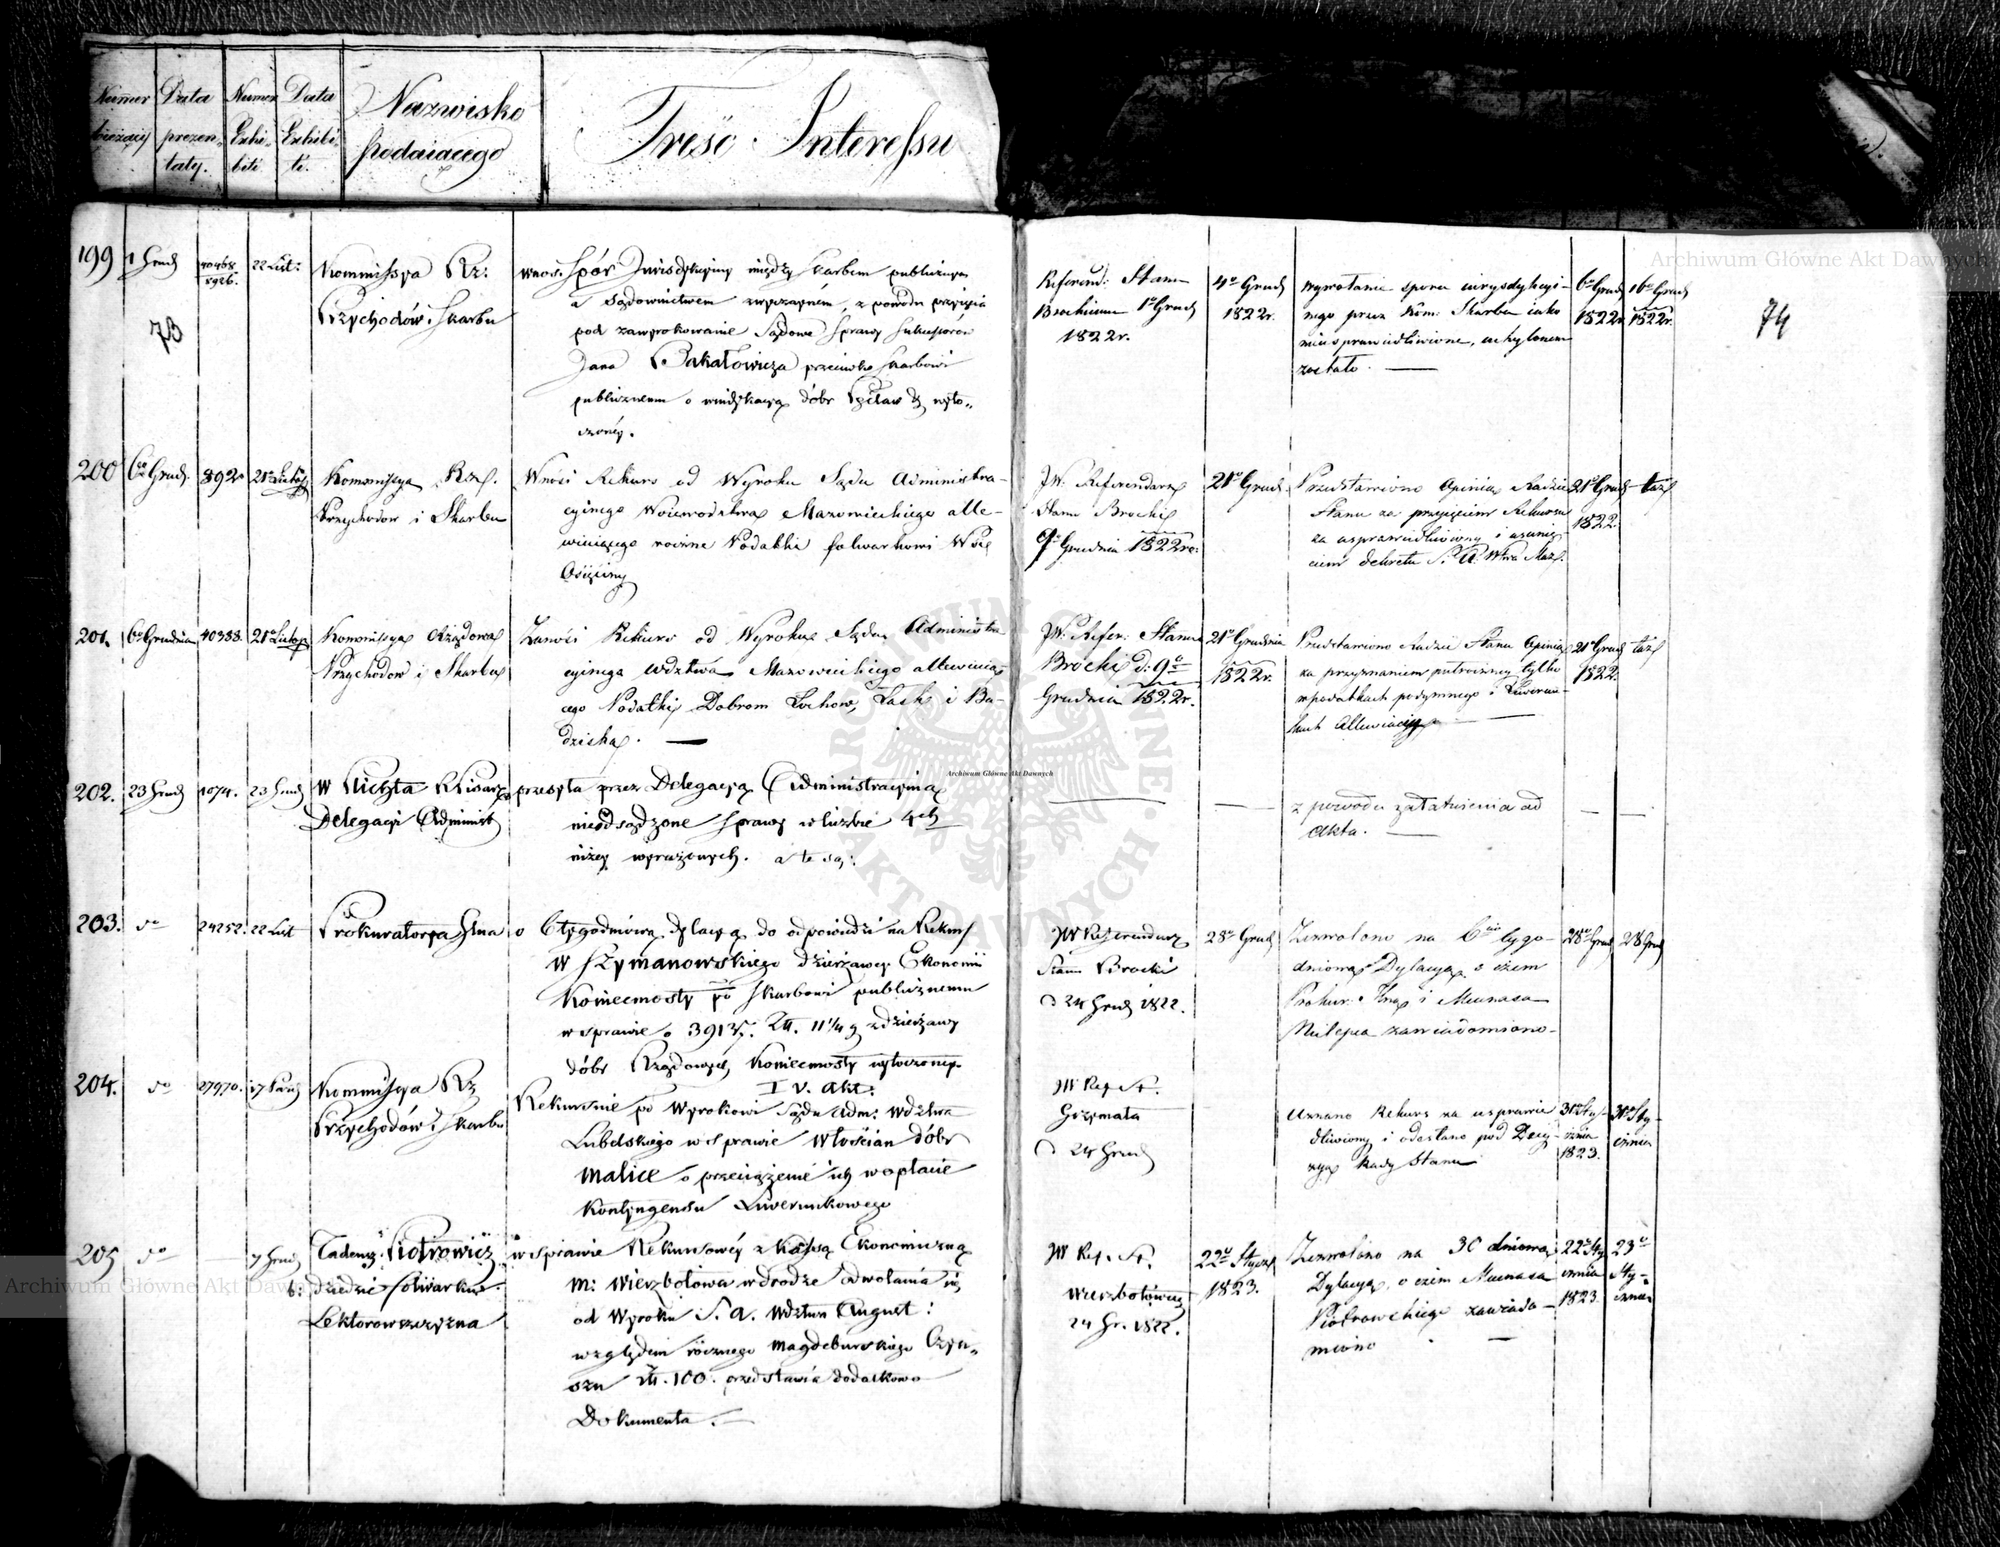 Numer bieżący
Data prezentaty.
Numer Exhibitu
Data Exhibitu
Nazwisko podaiącego
Treść Interessu
199
1 Grud
40468
5926.
22 List:
Kommissya Rz:
Przychodów i Skarbu
wnosi Spór Jurisdykcyiny między Skarbem publicznym
a Sądownictwem zwyczaynem, z powodu przyięcia
pod zawyrokowanie Sądowe Sprawy Sukcessorów
Jana Bakałowicza przeciwko Skarbowi
publicznemu o windykacyą dóbr
wyto-
czonéy.
Referend: Stanu
Brockiemu 1 Grud
1822r.
4 Grud
1822r.
wywołanie sporu iurysdykcyi-
nego przez Kom: Skarbu iako
nieusprawiedliwione, uchylonem
zostało.
6 Grud
1822r.
16 Grud
1822r.
73
74
200
6 Grud.
892
21 Listop
Kommissya Rz.
Przychodow i Skarbu
Wnosi Rekurs od Wyroku Sądu Administra-
cyinego Woiewodztwa Mazowieckiego alle-
wiuiącego roczne Podatki folwarkowi Wsi
JW. Referendarz
Stanu Brocki
9 Grudnia 1822r.
21 Grud.
Przedstawiono Opinią Radzie
Stanu za przyięciem Rekursu
za usprawiedliwiony i usunię-
ciem dekretu S. A. Wtwa Maz.
21 Grud
1822.
taż
201.
6 Grudnia
40388.
21 Listop
Kommissya Rządowa
Przychodow i Skarbu
Zanosi Rekurs od Wyroku Sądu Administra-
cyinego Wdztwa Mazowieckiego allewiuią-
cego Podatki Dobrom Lochow, Łask i Ba-
dziska.
JW. Refer: Stanu
Brocki d. 9
Grudnia 1822r.
21 Grudnia
1822r.
Przedstawiono Radzie Stanu Opinią
za przyznaniem potrąceney tylko
w podatkach podymnego i Liwerun-
kach allewiacyi
21 Grud
1822.
taż
202.
23 Grud
1074.
23 Grud
W Pisarz
Delegacyi Administ
przesyła przez Delegacyą Administracyiną
nieodsądzone Sprawy w liczbie 4ch
niżey wyrażonych. a te są:
z powodu załatwienia ad
akta.
203.
do
24252.
22 List
Prokuratorya Glna
o 6 tygodniową dylacyą do odpowiedzi na Rekurs
W Szymanowskiego dzierżawcy Ekonomii
Koniecmosty po Skarbowi publicznemu
w sprawie o 39135. Zł. 11 1/4 g z dzierżawy
dóbr Rządowych Koniecmosty wytoczoney.
JW Referendarz
Stanu Brocki
d 24 Grud 1822.
28 Grud
Zezwolono na 6 tygo-
dniową Dylacyą o czem
Prokur: Glną i Mecenasa
zawiadomiono.
28 Grud
28 Grud
204.
do
27970.
Kommissya Rz
Przychodów i Skarbu
I V. Akt:
Rekursuie po Wyrokowi Sądu Adm: Wdztwa
Lubelskiego w sprawie Włościan dóbr
Malice o przeciążenie ich w opłacie
Kontyngensu Liwerunkowego
JW Ref. St.
Grzymała
d 24 Grud
Uznano Rekurs za usprawie-
dliwiony i odesłano pod Decy-
zyą Rady Stanu
31 Sty-
cznia
1823.
31 Sty-
cznia
205
do
7 Grud
Tadeusz Piotrowicz
b: dziedzic folwarku
Lektorowszczyzna
w sprawie Rekursowéy z Kassą Ekonomiczną
M: Wierzbołowa w drodze odwołania się
od Wyroku S. A. Wdztwa August:
względem rocznego magdeburskiego Czyn-
szu zł. 100. przedstawia dodatkowo
Dokumenta.
JW Ref. St.
Wierzbołowicz
24 Gr. 1822.
22 Stycz
1823.
Zezwolono na 30 dniową
Dylacyą, o czem Mecenasa
Piotrowskiego zawiado-
miono
22 Sty
cznia
1823.
23
Sty-
cznia
Archiwum Główne Akt Dawnych
Archiwum Główne Akt Dawnych
Archiwum Główne Akt Dawnych